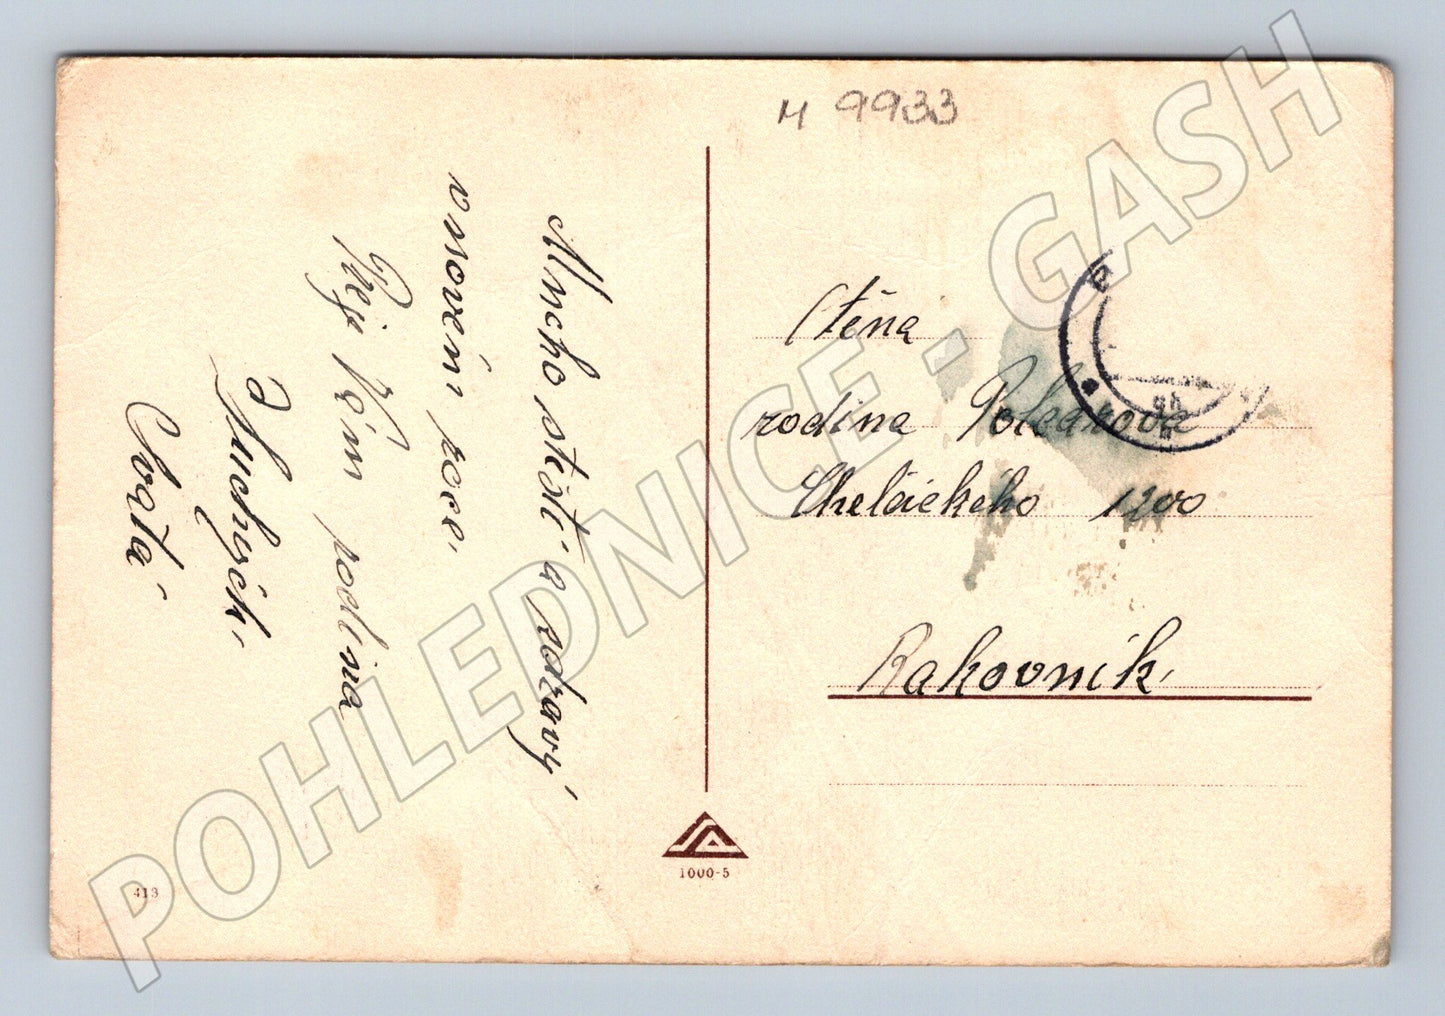 M 9933
Mnoho štěstí a zdraví
v novém roce
Přeje Vám rodina
Suchých
Svatá
Ctěná
rodina Polcarova
Chelčického 1200
Rakovník
1000-5
413
POHLEDNICE - GASH